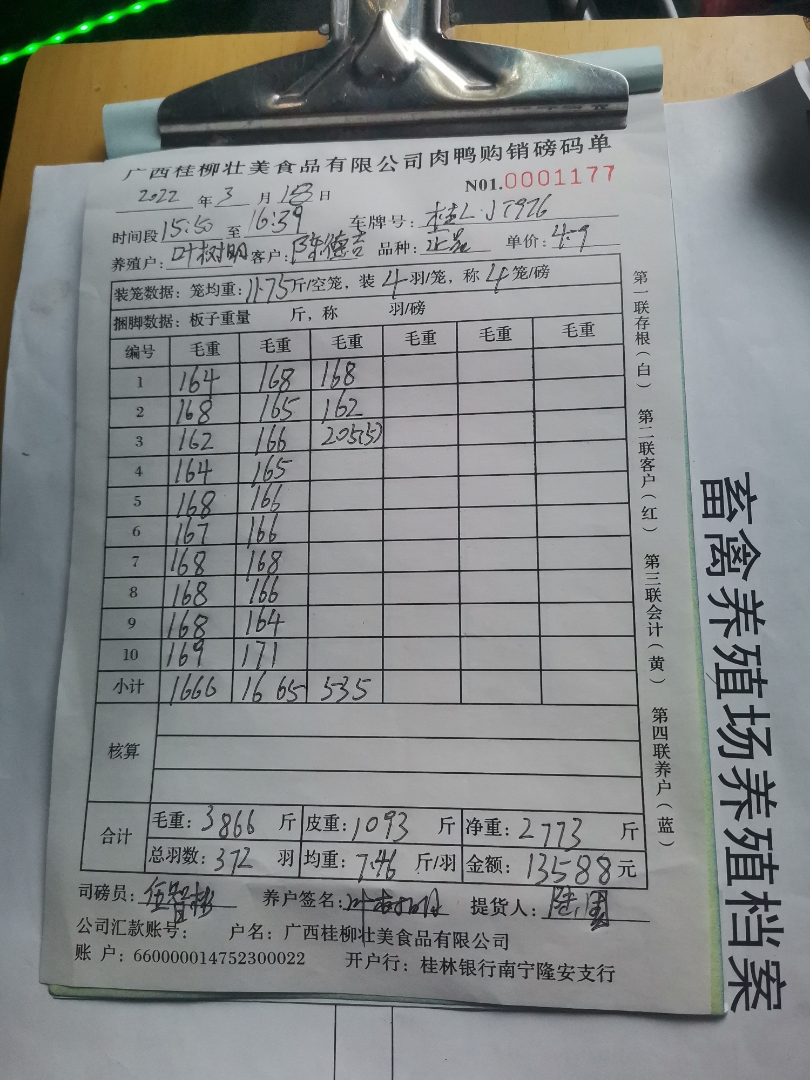 广西桂柳壮美食品有限公司肉鸭购销磅码单
2022 年 3 月 日 N01.0001177
时间段 15:50 至 16:39 车牌号: 桂L·JT926
养殖户: 叶树明 客户: 陈德吉 品种: 单价: 4.9
装笼数据: 笼均重: 11.75 斤/空笼, 装 4 羽/笼, 称 4 笼/磅
捆脚数据: 板子重量 斤, 称 羽/磅
编号 毛重 毛重 毛重 毛重 毛重 毛重
1 164 168 168
2 168 165 162
3 162 166 205(5)
4 164 165
5 168 166
6 167 166
7 168 168
8 168 166
9 168 164
10 169 171
小计 1666 1665 535
核算
合计 毛重: 3866 斤 皮重: 1093 斤 净重: 2773 斤
总羽数: 372 羽 均重: 7.46 斤/羽 金额: 13588 元
司磅员: 养户签名: 提货人:
公司汇款账号: 户名: 广西桂柳壮美食品有限公司
账 户: 660000014752300022 开户行: 桂林银行南宁隆安支行
第一联存根(白) 第二联客户(红) 第三联会计(黄) 第四联养户(蓝)
畜禽养殖场养殖档案